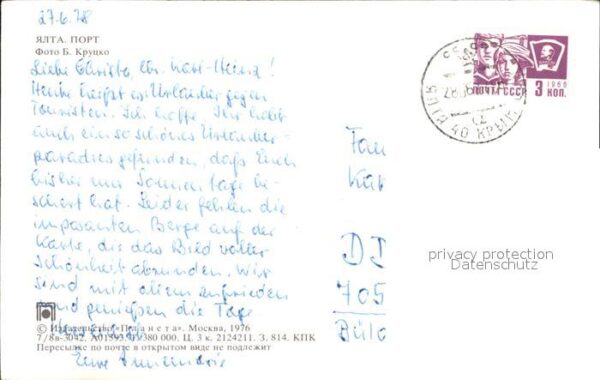 27.6.78
ЯЛТА. ПОРТ
Фото Б. Круцко
Liebe Christa, lb. Karl-Heinz!
Heute heißt es Urlauber gegen
Touristen. Ich hoffe, Ihr habt
auch ein so schönes Urlauber-
paradies gefunden, daß Euch
bisher nur Sonnentage be-
schert hat. Leider fehlen die
imposanten Berge auf der
Karte, die das Bild voller
Schönheit abrunden. Wir
sind mit allem zufrieden
und genießen die Tage
© Издательство «Планета». Москва, 1976
7/8в-3042. А01593. 380 000. Ц. 3 к. 2124211. З. 814. КПК
Пересылке по почте в открытом виде не подлежит
Eure
ПОЧТА СССР
1966
3 КОП.
ЯЛТА
КРЫМ
Fam
Kar
DD
705
privacy protection
Datenschutz